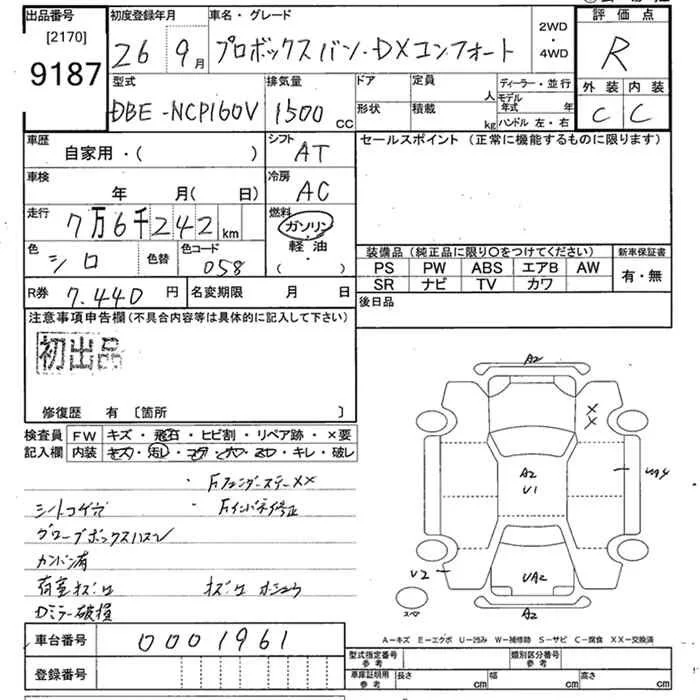 出品番号
[2170]
9187
初度登録年月
26 9月
車名・グレード
プロボックスバン・DXコンフォート
2WD
・
4WD
評価点
R
外装 内装
C C
型式
DBE-NCP160V
排気量
1500 CC
ドア
定員
人
形状
積載
kg
ディーラー・並行
モデル年式 年
ハンドル 左・右
車歴
自家用・( )
シフト
AT
セールスポイント (正常に機能するものに限ります)
車検
年 月( 日)
冷房
AC
走行
7万6千242 km
燃料
ガソリン
・
軽油
( )
色
シロ
色替
色コード
058
装備品(純正品に限り〇をつけてください)
新車保証書
PS PW ABS エアB AW
有・無
SR ナビ TV カワ
R券 7.440 円
名変期限 月 日
後日品
注意事項申告欄(不具合内容等は具体的に記入して下さい)
初出品
修復歴 有 〔箇所 〕
検査員
記入欄
FW キズ・飛石・ヒビ割・リペア跡・×要
内装 キズ・汚レ・コゲ・穴・ヌロ・キレ・破レ
・Fフェンダーステー××
・Fインパネ修正
グローブボックスハズレ
カンバン有
荷室キズ凹
Dミラー破損
A2
X
X
A2
U1
U2
UA2
A2
スペ
車台番号 0001961
登録番号
A-キズ E-エクボ U-凹み W-補修跡 S-サビ C-腐食 XX-交換済
型式指定番号
参考
類別区分番号
参考
車庫証明用
参考
長さ cm
幅 cm
高さ cm